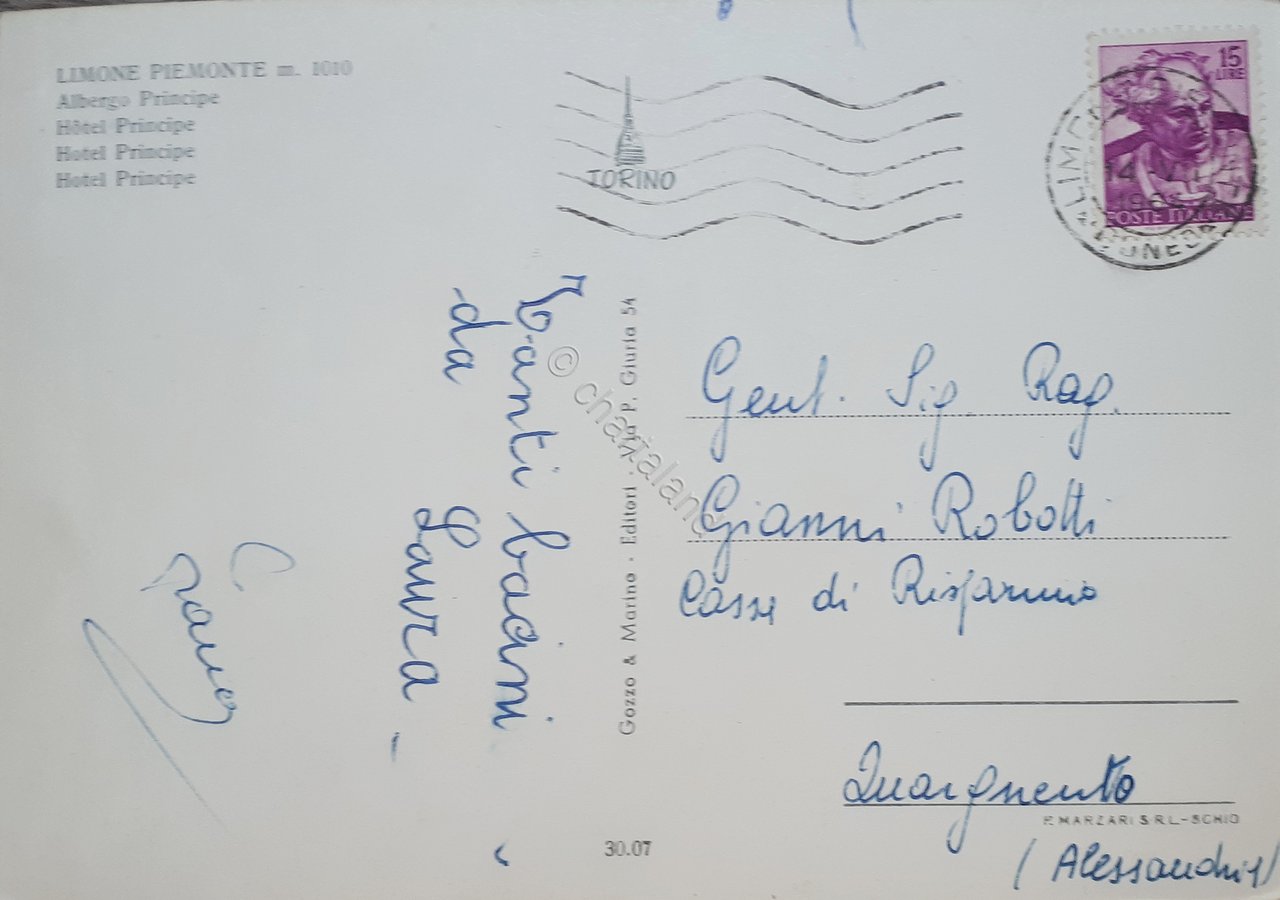 LIMONE PIEMONTE m. 1010
Albergo Principe
Hôtel Principe
Hotel Principe
Hotel Principe
TORINO
15
LIRE
POSTE ITALIANE
Tanti bacini
da Laura -
Gozzo & Marino · Editori · P. Giuria 54
© chartaland
Gent. Sig. Rag.
Gianni Robotti
Cassa di Risparmio
Quargnento
P. MARZARI S.R.L.-SCHIO
(Alessandria)
30.07